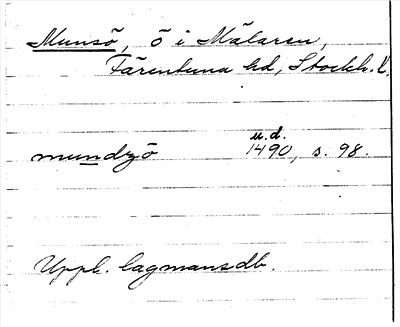 Munsö, ö i Mälaren,
Färentuna hd, Stockh. l.
u.d.
mundzö 1490, s. 98.
Uppl. lagmansdb.